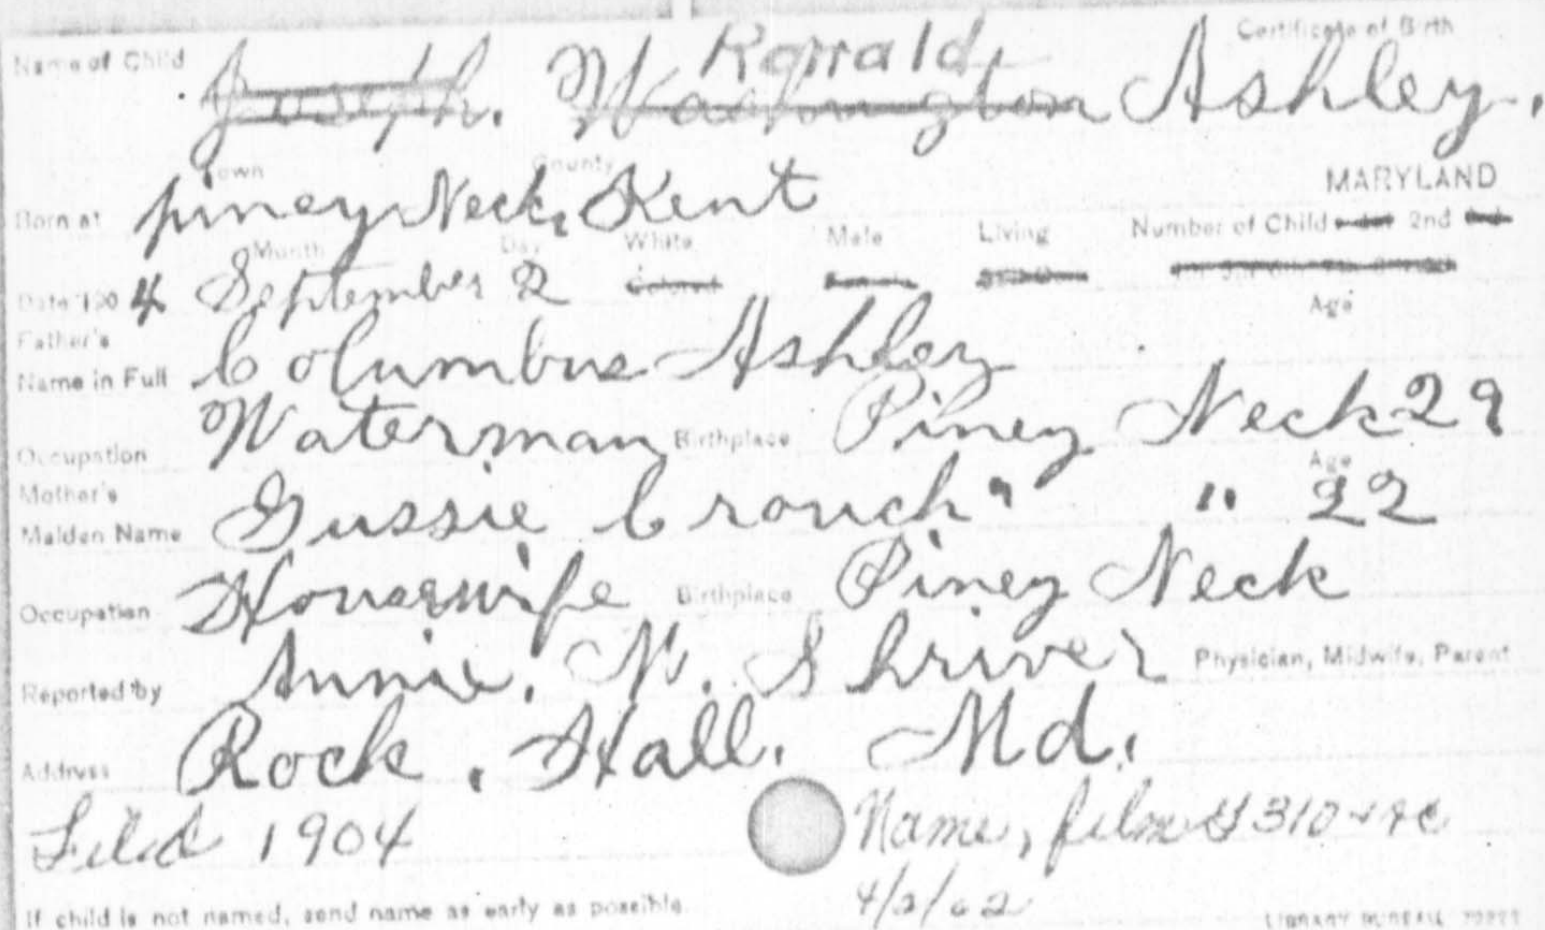 Certificate of Birth
Name of Child Joseph. Washington Ronald Ashley.
Town County
Born at piney Neck, Kent MARYLAND
Month Day White Male Living Number of Child 2nd
Date 190 4 September 2 Colored Female
Father's Age
Name in Full Columbus Ashley
Occupation Waterman Birthplace Piney Neck 29
Mother's Age
Maiden Name Gussie Crouch " " 22
Occupation Housewife Birthplace Piney Neck
Reported by Annie. N. Shriver Physician, Midwife, Parent
Address Rock, Hall. Md.
Filed 1904 Name, film G310
4/2/62
If child is not named, send name as early as possible.
LIBRARY BUREAU